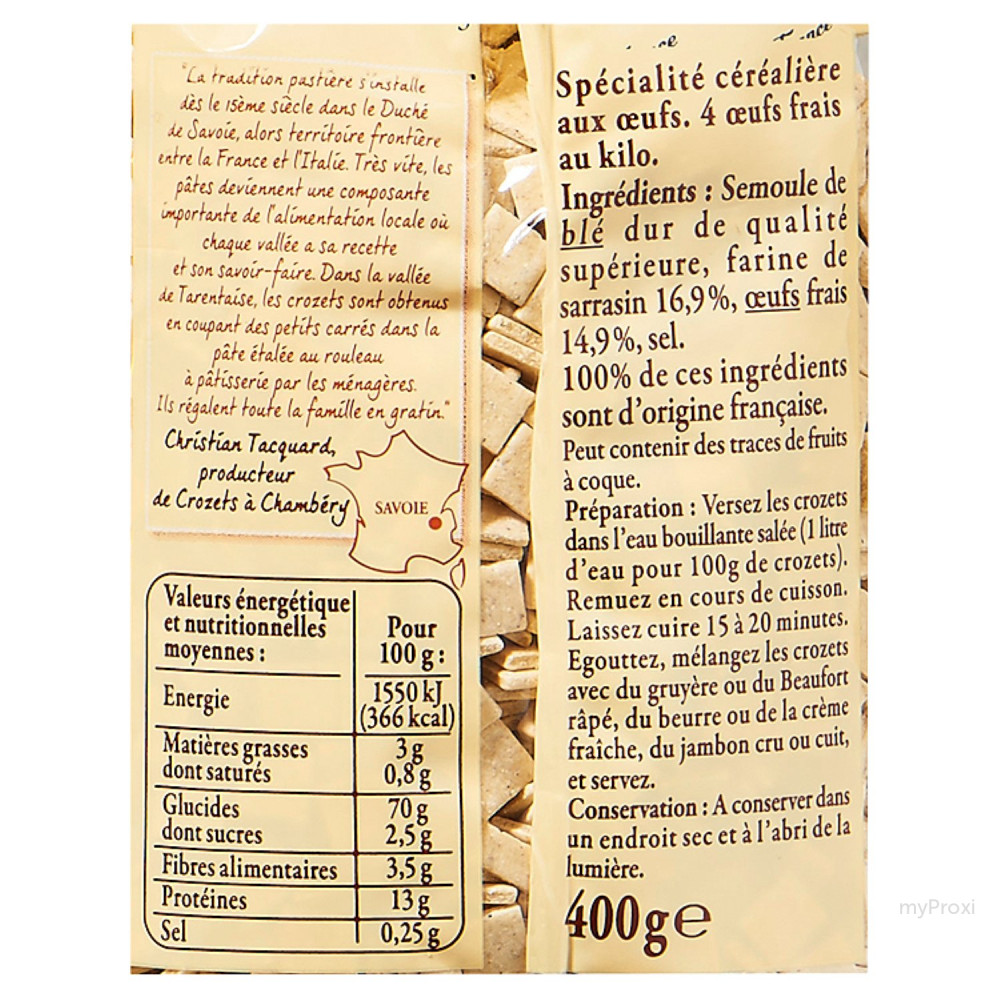 "La tradition pastière s'installe
dès le 15ème siècle dans le Duché
de Savoie, alors territoire frontière
entre la France et l'Italie. Très vite, les
pâtes deviennent une composante
importante de l'alimentation locale où
chaque vallée a sa recette
et son savoir-faire. Dans la vallée
de Tarentaise, les crozets sont obtenus
en coupant des petits carrés dans la
pâte étalée au rouleau
à pâtisserie par les ménagères.
Ils régalent toute la famille en gratin."
Christian Tacquard,
producteur
de Crozets à Chambéry
SAVOIE
Valeurs énergétique
et nutritionnelles
moyennes :
Pour
100 g :
Energie
1550 kJ
(366 kcal)
Matières grasses 3 g
dont saturés 0,8 g
Glucides 70 g
dont sucres 2,5 g
Fibres alimentaires 3,5 g
Protéines 13 g
Sel 0,25 g
Spécialité céréalière
aux œufs. 4 œufs frais
au kilo.
Ingrédients : Semoule de
blé dur de qualité
supérieure, farine de
sarrasin 16,9%, œufs frais
14,9%, sel.
100% de ces ingrédients
sont d'origine française.
Peut contenir des traces de fruits
à coque.
Préparation : Versez les crozets
dans l'eau bouillante salée (1 litre
d'eau pour 100g de crozets).
Remuez en cours de cuisson.
Laissez cuire 15 à 20 minutes.
Egouttez, mélangez les crozets
avec du gruyère ou du Beaufort
râpé, du beurre ou de la crème
fraîche, du jambon cru ou cuit,
et servez.
Conservation : A conserver dans
un endroit sec et à l'abri de la
lumière.
400g e
myProxi